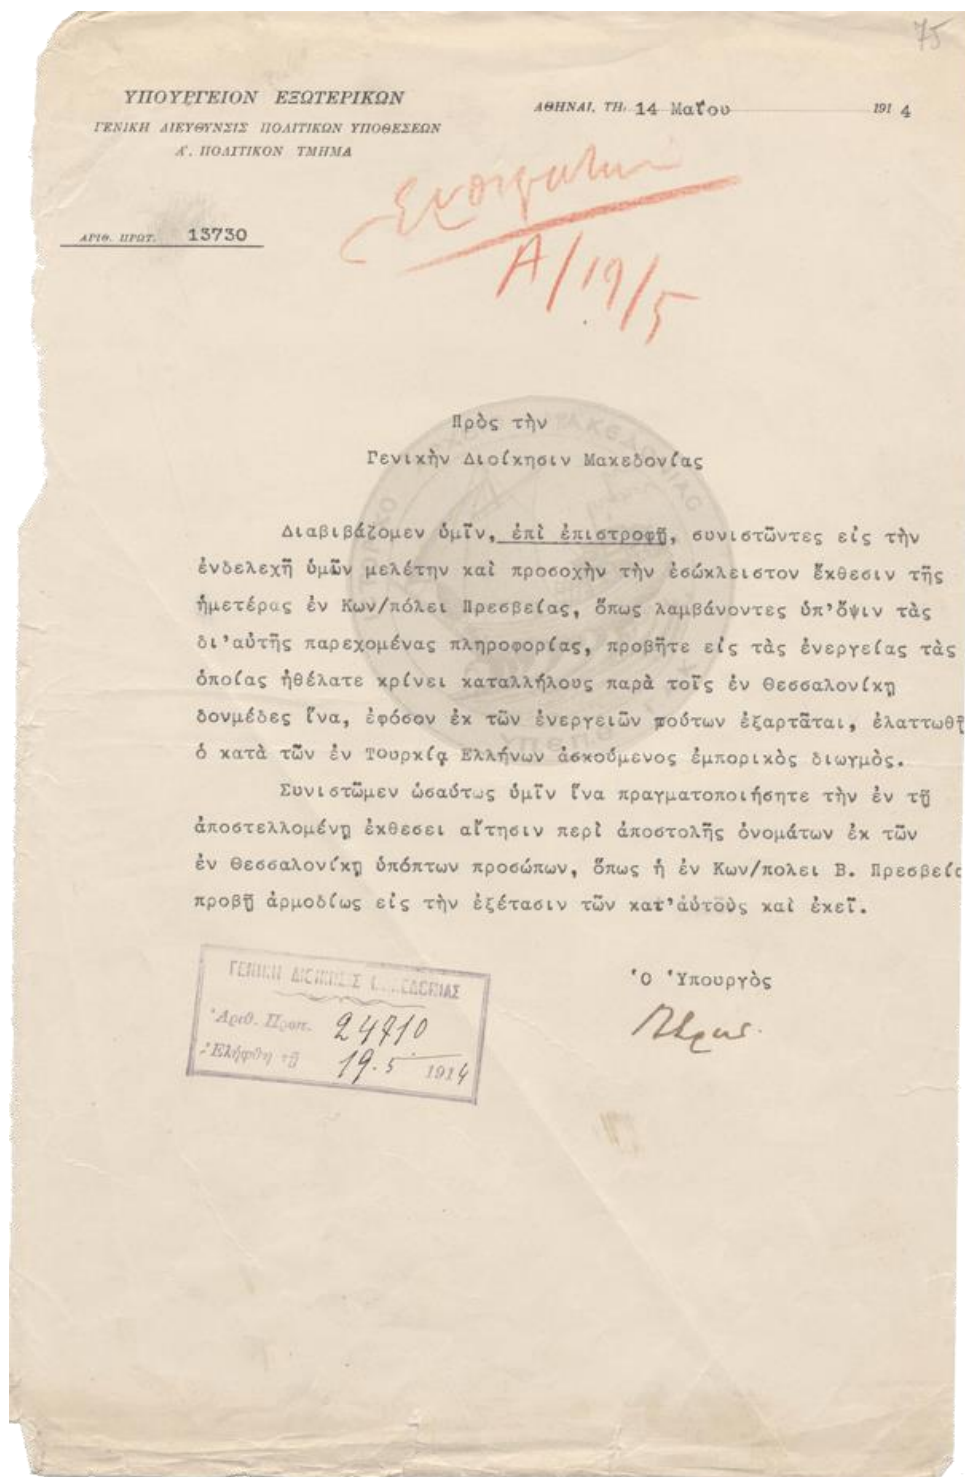 75
ΥΠΟΥΡΓΕΙΟΝ ΕΞΩΤΕΡΙΚΩΝ
ΓΕΝΙΚΗ ΔΙΕΥΘΥΝΣΙΣ ΠΟΛΙΤΙΚΩΝ ΥΠΟΘΕΣΕΩΝ
Α'. ΠΟΛΙΤΙΚΟΝ ΤΜΗΜΑ
ΑΘΗΝΑΙ, ΤΗι 14 Μαΐου 1914
ΑΡΙΘ. ΠΡΩΤ. 13730
Α/19/5
Πρὸς τὴν
Γενικὴν Διοίκησιν Μακεδονίας
Διαβιβάζομεν ὑμῖν, ἐπὶ ἐπιστροφῇ, συνιστῶντες εἰς τὴν
ἐνδελεχῆ ὑμῶν μελέτην καὶ προσοχὴν τὴν ἐσώκλειστον ἔκθεσιν τῆς
ἡμετέρας ἐν Κων/πόλει Πρεσβείας, ὅπως λαμβάνοντες ὑπ'ὄψιν τὰς
δι'αὐτῆς παρεχομένας πληροφορίας, προβῆτε εἰς τὰς ἐνεργείας τὰς
ὁποίας ἠθέλατε κρίνει καταλλήλους παρὰ τοῖς ἐν Θεσσαλονίκῃ
δονμέδες ἵνα, ἐφόσον ἐκ τῶν ἐνεργειῶν τούτων ἐξαρτᾶται, ἐλαττωθῇ
ὁ κατὰ τῶν ἐν Τουρκίᾳ Ἑλλήνων ἀσκούμενος ἐμπορικὸς διωγμὸς.
Συνιστῶμεν ὡσαύτως ὑμῖν ἵνα πραγματοποιήσητε τὴν ἐν τῇ
ἀποστελλομένῃ ἐκθεσει αἴτησιν περὶ ἀποστολῆς ὀνομάτων ἐκ τῶν
ἐν Θεσσαλονίκῃ ὑπόπτων προσώπων, ὅπως ἡ ἐν Κων/πολει Β. Πρεσβεία
προβῇ ἁρμοδίως εἰς τὴν ἐξέτασιν τῶν κατ'αὐτοὺς καὶ ἐκεῖ.
Ὁ Ὑπουργὸς
ΓΕΝΙΚΗ ΔΙΟΙΚΗΣΙΣ ΜΑΚΕΔΟΝΙΑΣ
Ἀριθ. Πρωτ. 24710
Ἐλήφθη τῇ 19.5 1914